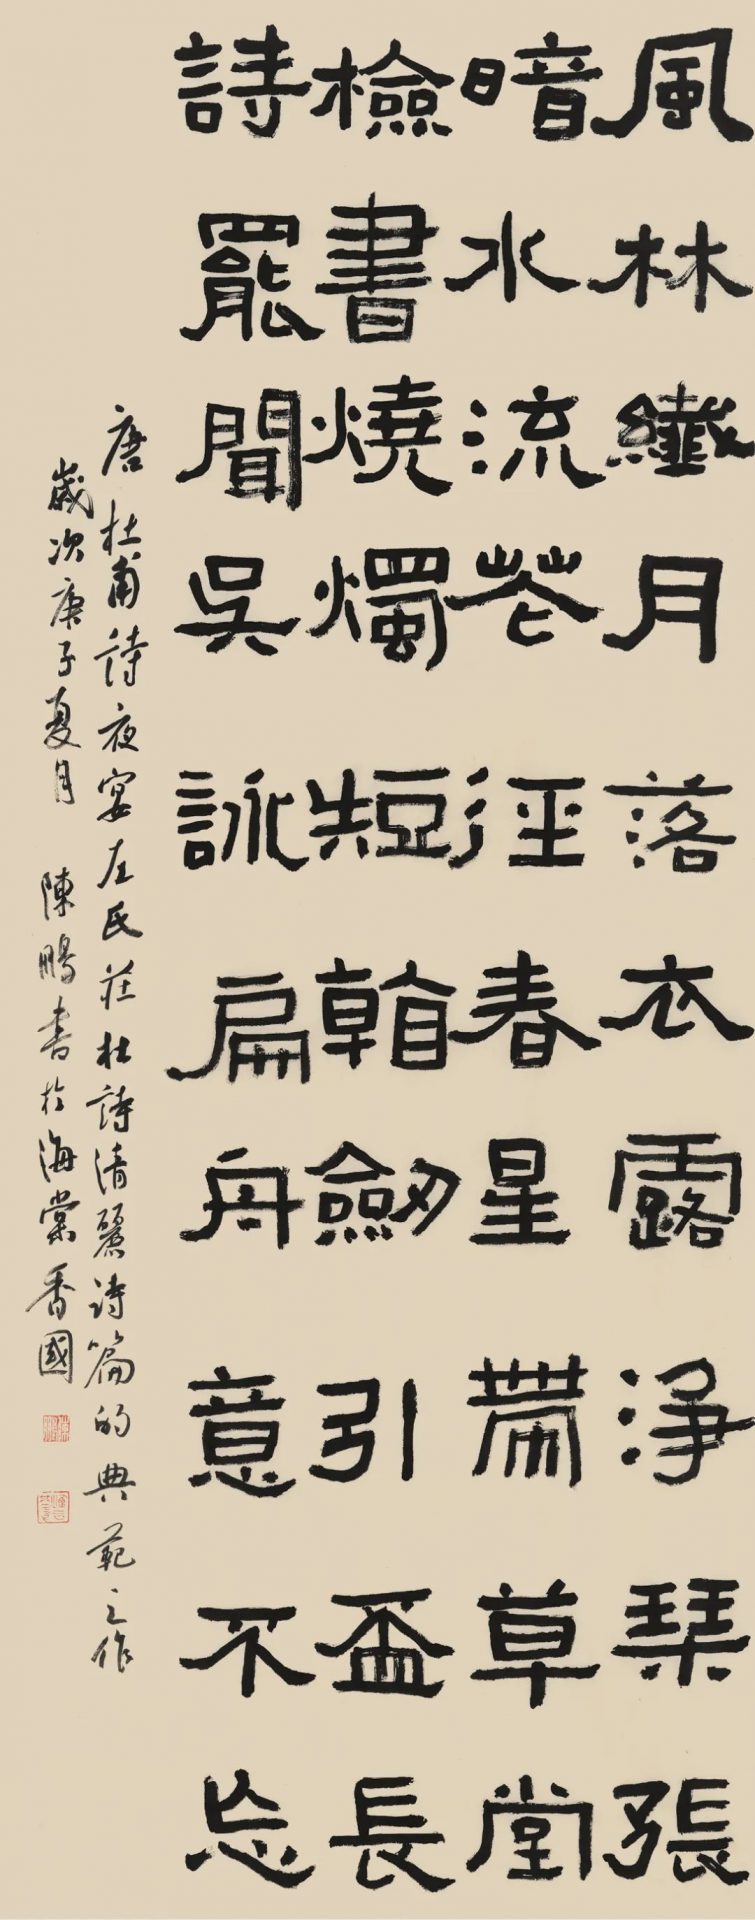 風林纖月落衣露淨琴張
暗水流花徑春星帶草堂
檢書燒燭短看劒引盃長
詩罷聞吳詠扁舟意不忘
唐杜甫詩夜宴左氏莊杜詩清麗詩篇的典範之作
歲次庚子夏月 陳鵬書於海棠香國